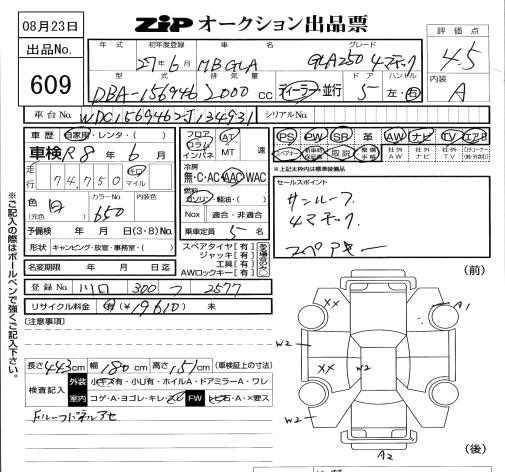 08月23日
ZIP オークション出品票
出品No.
609
年式 初年度登録 車名 グレード
27年6月 MB GLA GLA250 4マチック
型式 排気量 ドア ハンドル
DBA-156946 2000cc ディーラー・並行 5 左・右
評価点
4.5
内装
A
車台No. WDC1569462J134931 シリアルNo.
車歴 自家用・レンタ・( )
車検 R8年6月
走行 74,750 キロ マイル
色(元色) 白 カラーNo. 650 内装色
予備検 年 月 日(3・8)No.
形状 キャンピング・放室・事務室・( )
名変期限 年 月 日迄
フロア コラム インパネ AT MT 速
冷房 無・C・AC・AAC・WAC
燃料 ガソリン・軽油・( )
Nox 適合・非適合
乗車定員 5名
スペアタイヤ[有]
ジャッキ[有]
工具[有]
AWロックキー[有]
PS PW SR 革 AW ナビ TV エアB 社外AW 社外ナビ 社外TV
スペアキー 新車時保証書 取説 整備手帳
※上記太枠内は標準装備品
セールスポイント
サンルーフ
4マチック
スペアキー
登録No. 川口 300 つ 2577
リサイクル料金 有(¥19610) 未
[注意事項]
長さ443cm 幅180cm 高さ151cm (車検証上の寸法)
検査記入 外装 小キズ有・小U有・ホイルA・ドアミラーA・ワレ
室内 コゲ・A・ヨゴレ・キレ・スレ FW トビ石・A・×要ス
Fルーフパネルアセ
※ご記入の際はボールペンで強くご記入下さい。
(前)
XX A1
W2 W2
XX
W2
A2
(後)